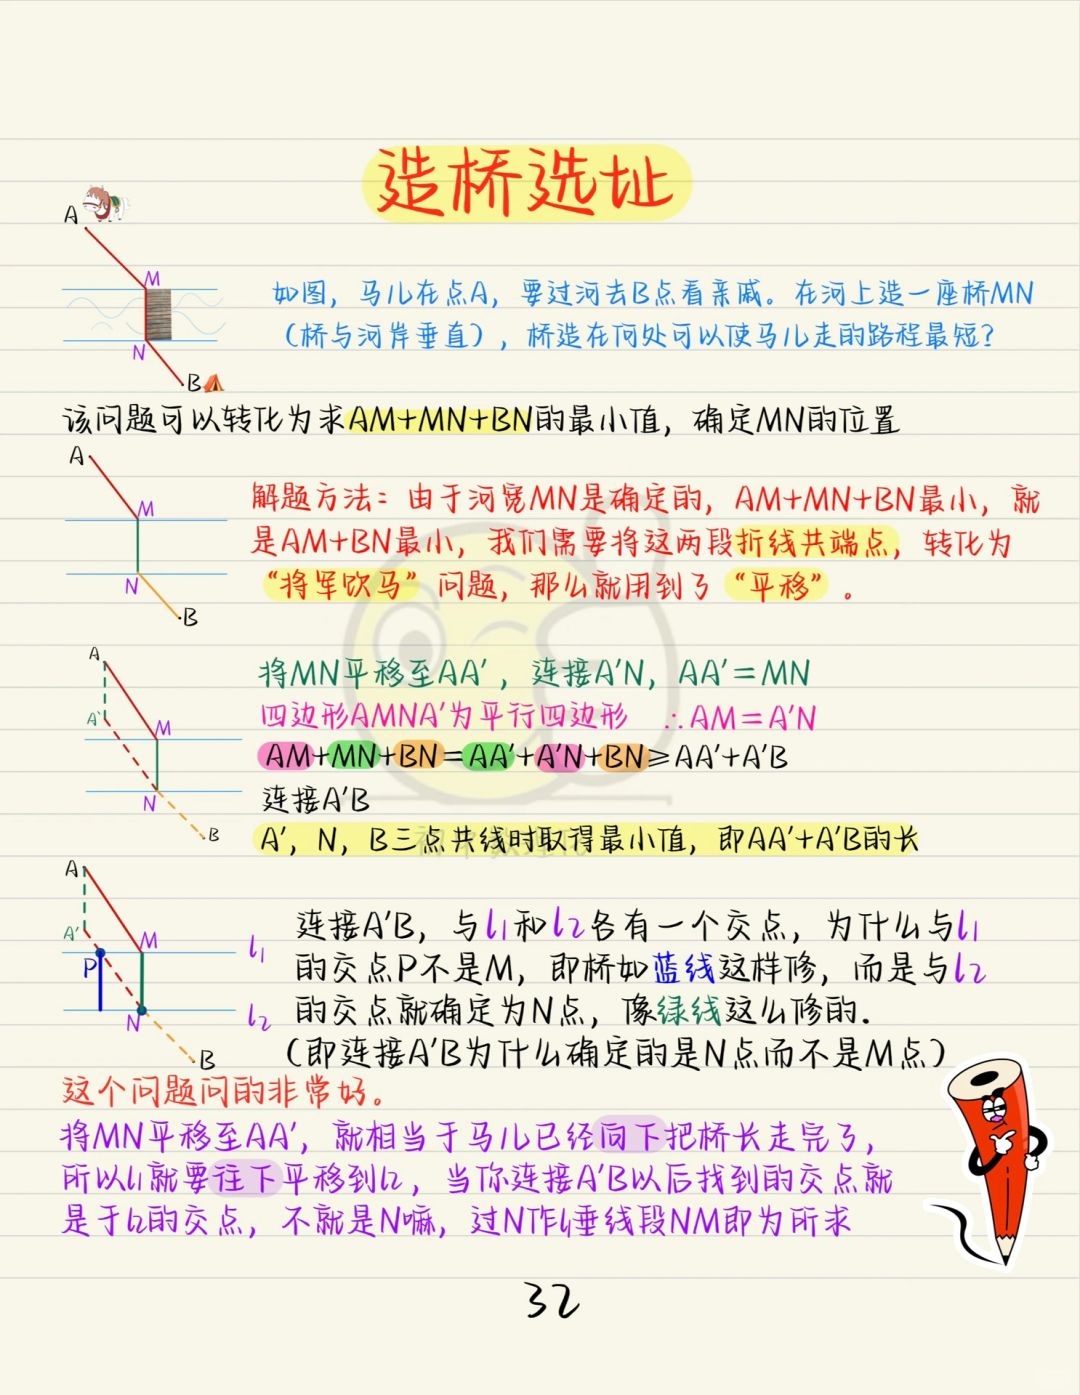 造桥选址
A
M
N
B
如图，马儿在点A，要过河去B点看亲戚。在河上造一座桥MN
（桥与河岸垂直），桥造在何处可以使马儿走的路程最短？
该问题可以转化为求AM+MN+BN的最小值，确定MN的位置
A
M
N
B
解题方法：由于河宽MN是确定的，AM+MN+BN最小，就
是AM+BN最小，我们需要将这两段折线共端点，转化为
“将军饮马”问题，那么就用到了“平移”。
A
A'
M
N
B
将MN平移至AA'，连接A'N，AA'=MN
四边形AMNA'为平行四边形 ∴AM=A'N
AM+MN+BN=AA'+A'N+BN≥AA'+A'B
连接A'B
A'，N，B三点共线时取得最小值，即AA'+A'B的长
A
A'
M
P
N
B
l1
l2
连接A'B，与l1和l2各有一个交点，为什么与l1
的交点P不是M，即桥如蓝线这样修，而是与l2
的交点就确定为N点，像绿线这么修的.
（即连接A'B为什么确定的是N点而不是M点）
这个问题问的非常好。
将MN平移至AA'，就相当于马儿已经向下把桥长走完了，
所以l1就要往下平移到l2，当你连接A'B以后找到的交点就
是于l2的交点，不就是N嘛，过N作l1垂线段NM即为所求
32